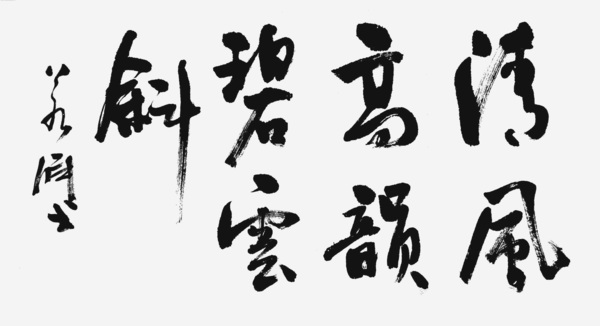 清風
高韻
碧雲
斜